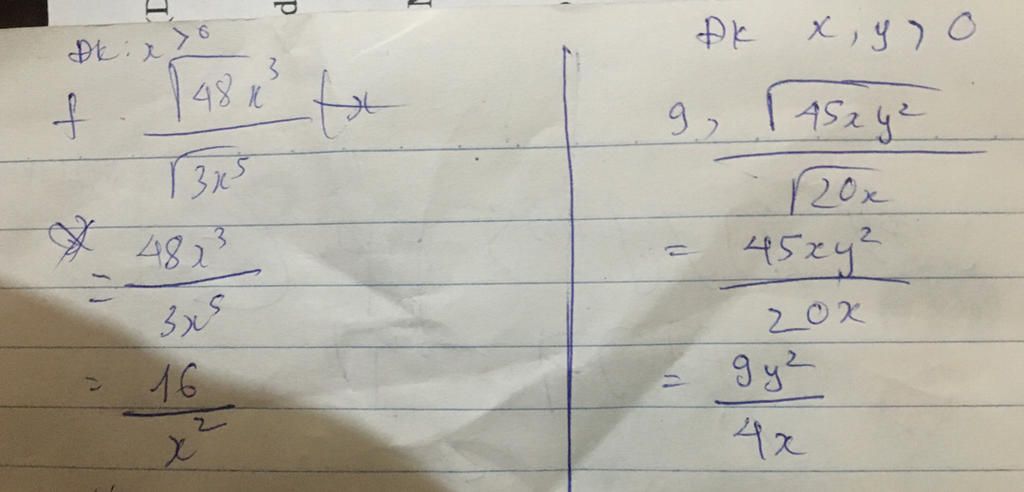 ĐK: x > 0
f. √48x³ / √3x⁵
= 48x³ / 3x⁵
= 16 / x²
ĐK x, y > 0
g, √45xy² / √20x
= 45xy² / 20x
= 9y² / 4x